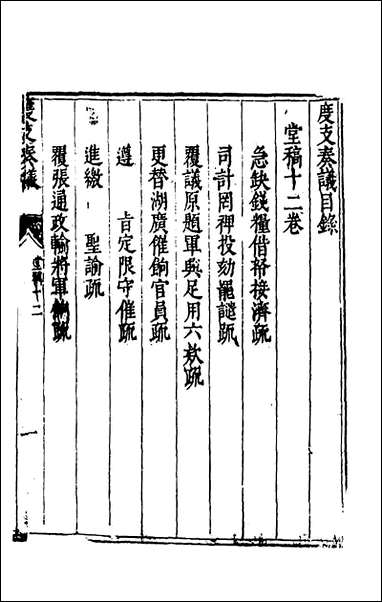 度支奏議目錄
堂稿十二卷
急缺錢糧借帑接濟疏
司計罔裨投劾罷譴疏
覆議原題軍興足用六欵疏
更替湖廣催餉官員疏
遵 旨定限守催疏
進繳 聖諭疏
覆張通政輸將軍餉疏
度支奏議 堂稿十二 一